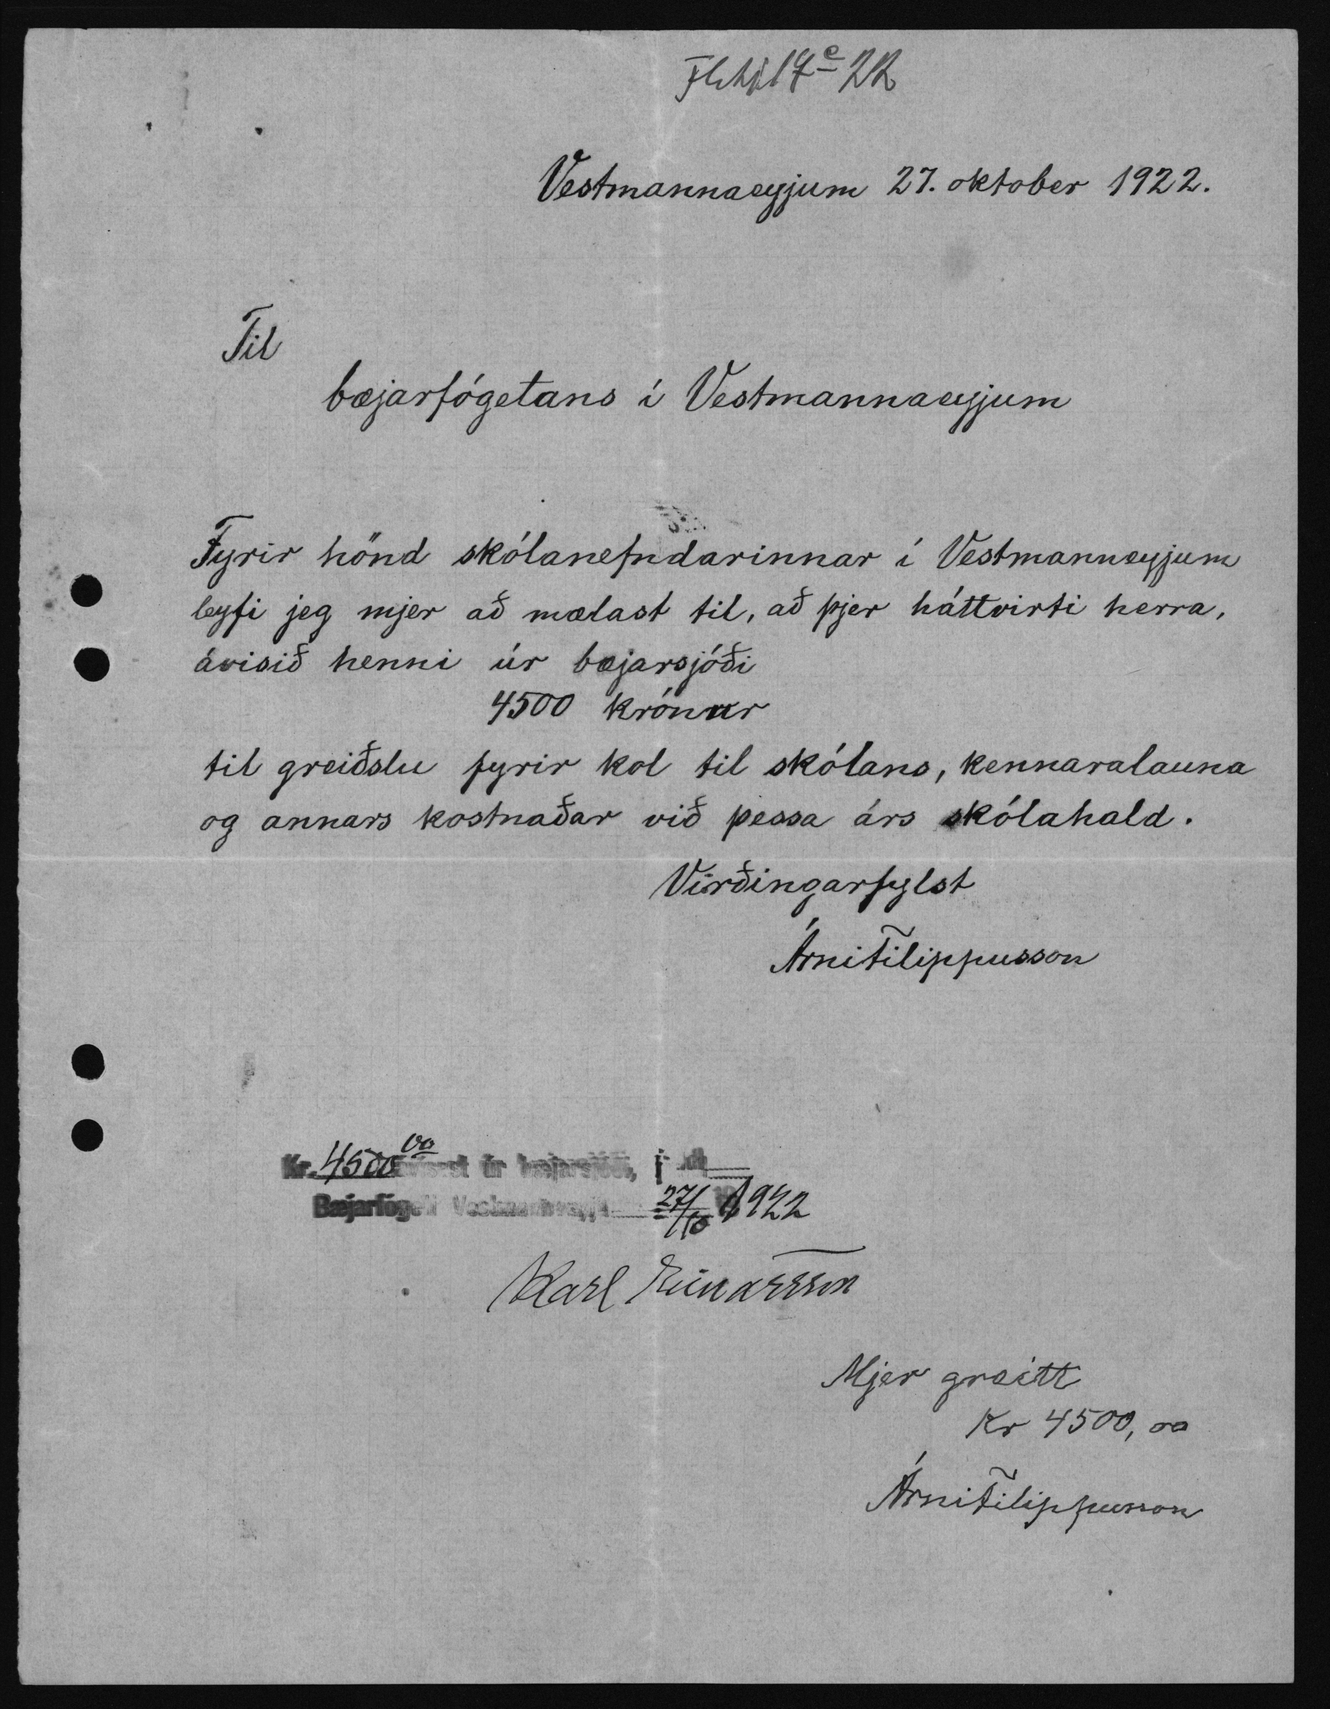 Vestmannaeyjum 27. oktober 1922.
Til
bæjarfógetans í Vestmannaeyjum
Fyrir hönd skólanefndarinnar í Vestmanneyjum
leyfi jeg mjer að mælast til, að þjer háttvirti herra,
ávisið henni úr bæjarsjóði
4500 krónur
til greiðslu fyrir kol til skólans, kennaralauna
og annars kostnaðar við þessa árs skólahald.
Virðingarfylst
Árni Filippusson
Kr. 4500 00 úr bæjarsjóði,
Bæjarfógeti 27/10 1922
Karl Einarsson
Mjer greitt
Kr 4500, 00
Árni Filippusson